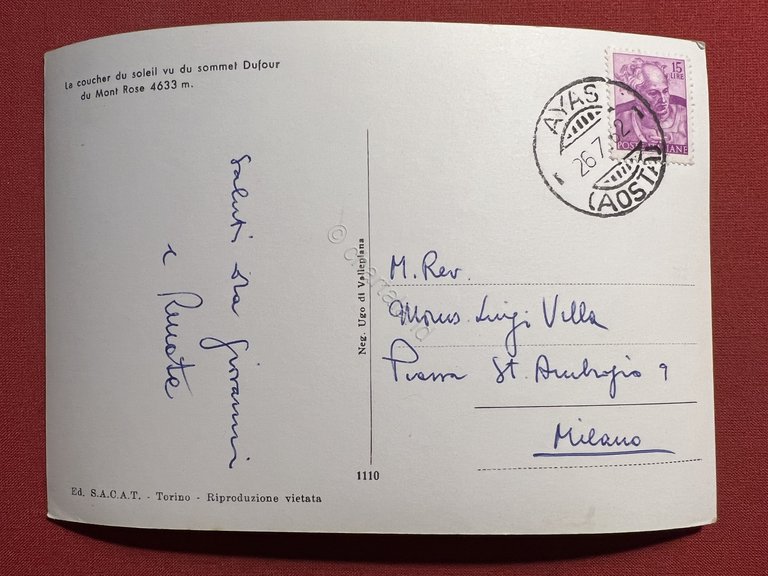 Le coucher du soleil vu du sommet Dufour
du Mont Rose 4633 m.
15
LIRE
POSTE ITALIANE
AYAS
26.7.62
(AOSTA)
Saluti da Giovanni
e Renate
Neg. Ugo di Vallepiana
M. Rev.
Mons. Luigi Villa
Piazza St. Ambrogio 9
Milano
1110
Ed. S.A.C.A.T. - Torino - Riproduzione vietata